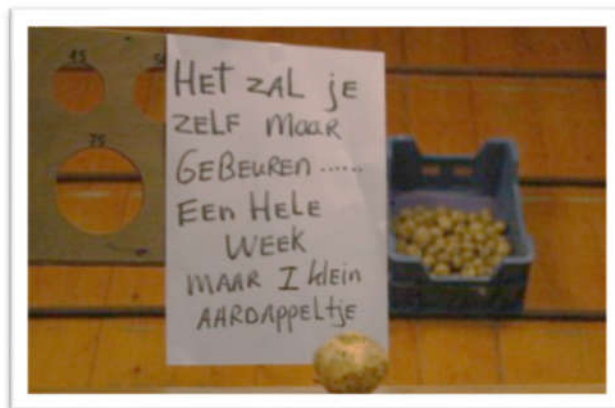 45
50
75
HET ZAL jE
ZELF maar
GEBEUREN ......
EEN HELE
WEEK
MAAR 1 klein
AARDAPPELtje